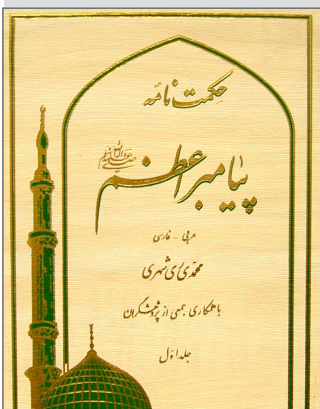 حکمت نامه
پیامبر اعظم صلی الله علیه وآله وسلم
عربی - فارسی
محمدی ری شهری
با همکاری جمعی از پژوهشگران
جلد اول